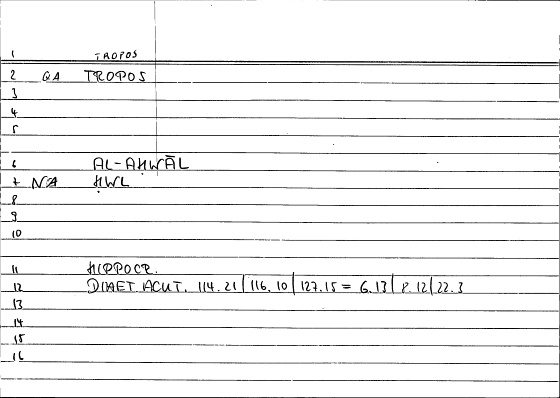 1 TROPOS
2 QA TROPOS
3
4
5
6 AL-AḤWĀL
7 NA ḤWL
8
9
10
11 HIPPOCR.
12 DIAET. ACUT. 114.21 | 116.10 | 127.15 = 6.13 | 8.12 | 22.3
13
14
15
16